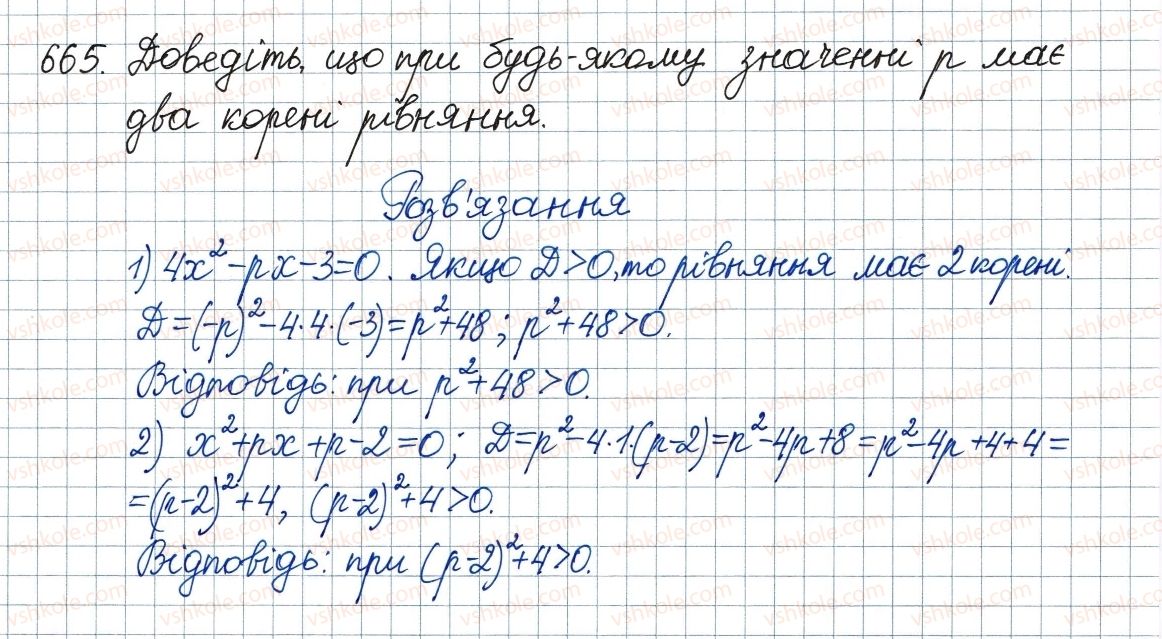 665. Доведіть, що при будь-якому значенні p має
два корені рівняння.
Розв'язання
1) 4x² - px - 3 = 0. Якщо D > 0, то рівняння має 2 корені.
D = (-p)² - 4·4·(-3) = p² + 48; p² + 48 > 0.
Відповідь: при p² + 48 > 0.
2) x² + px + p - 2 = 0; D = p² - 4·1·(p-2) = p² - 4p + 8 = p² - 4p + 4 + 4 =
= (p-2)² + 4, (p-2)² + 4 > 0.
Відповідь: при (p-2)² + 4 > 0.